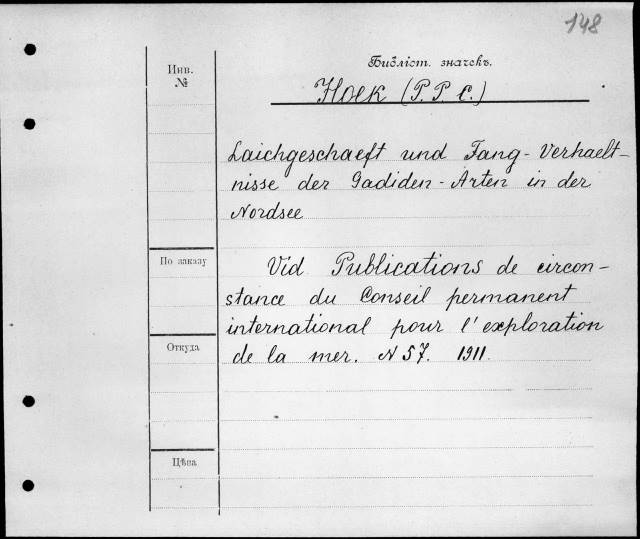 148
Инв.
№
Библіот. значекъ.
Hoek (P. P. C.)
Laichgeschaeft und Fang-Verhaelt-
nisse der Gadiden-Arten in der
Nordsee
По заказу
Vid Publications de circon-
stance du Conseil permanent
international pour l'exploration
de la mer. N 57. 1911.
Откуда
Цѣна